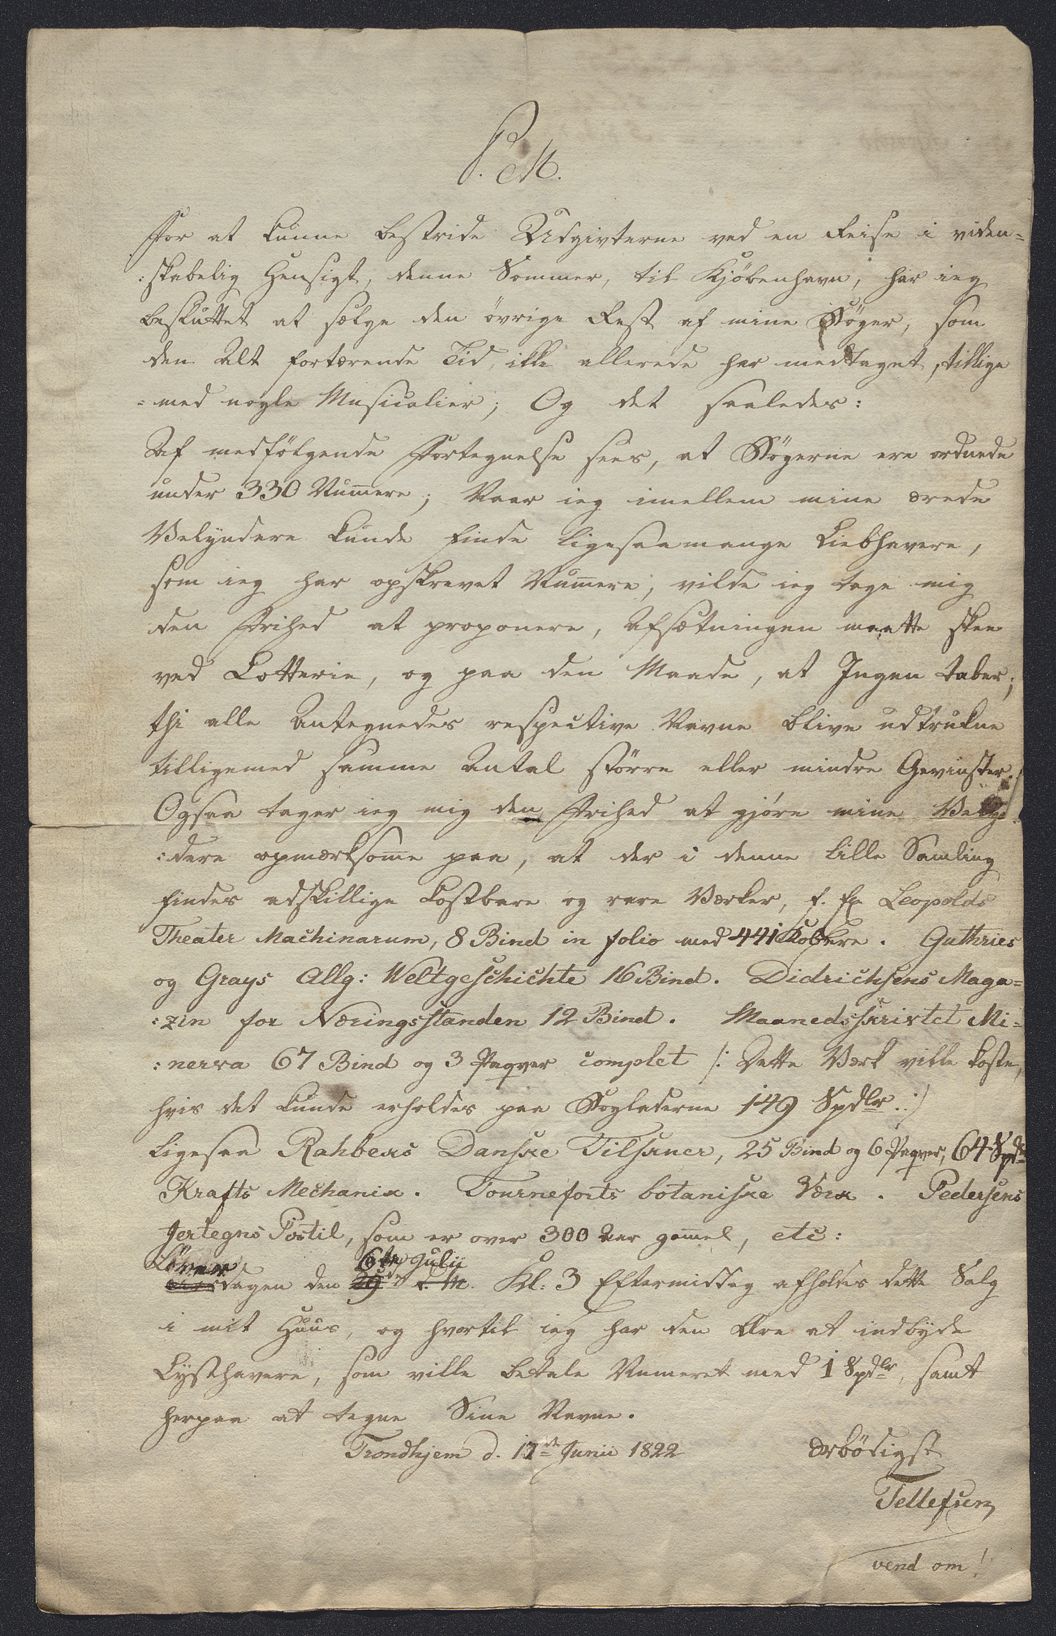 P. M.
For at kunne bestride Udgivterne ved en Reise i viden=
:skabelig Hensigt, denne Sommer, til Kjöbenhavn, har ieg
besluttet at sælge den övrige Rest af mine Böger, som
den Alt fortærende Tid, ikke allerede har medtaget, tillige
=med nogle Musicalier; Og det saaledes:
Af medfölgende Fortegnelse sees, at Bögerne ere ordnede
under 330 Numere; Naar ieg imellem mine ærede
Velyndere kunde finde ligesaamange Liebhavere,
som ieg har opskrevet Numere, vilde ieg tage mig
den Frihed at proponere, Afsætningen maatte skee
ved Lotterie, og paa den Maade, at Ingen taber;
thi alle Antegnedes respective Navne blive udtrukne
tilligemed samme Antal större eller mindre Gevinster.
Ogsaa tager ieg mig den Frihed at gjöre mine Velyn
:dere opmærksomme paa, at der i denne lille Samling
findes adskillige kostbare og rare Værker, f. Ex Leopolds
Theater Machinarum, 8 Bind in folio med 441 Kobbere. Guthries
og Grays Allg: Weltgeschichte 16 Bind. Didrichsens Maga=
:zin for Næringsstanden 12 Bind. Maanedsskrivtet Mi=
:nerva 67 Bind og 3 Paqver complet /: Dette Værk ville koste,
hvis det kunde erholdes paa Bogladerne 149 Spdlr. :/
Ligesaa Rahbeks Danske Tilskuer, 25 Bind og 6 Paqver, 64 Spdlr
Krafts Mechanik. Tourneforts botaniske Værk. Pedersens
Jertegns Postil, som er over 300 Aar gammel, etc:
Löver
dagen den 29 6te Julii d. M. Kl: 3 Eftermiddag afholdes dette Salg
i mit Huus, og hvortil ieg har den Ære at indbyde
Lysthavere, som ville betale Numeret med 1 Spdlr, samt
herpaa at tegne Sine Navne.
Trondhjem d. 17de Junii 1822 ærbödigst
Tellefsen
vend om!